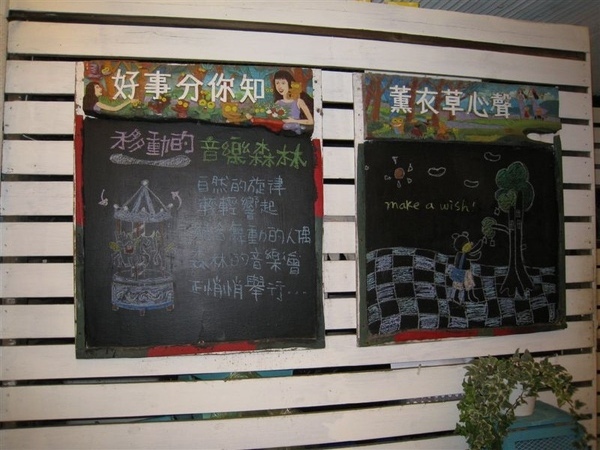 好事分你知
移動的 音樂森林
自然的旋律
輕輕響起
舞動的人偶
森林的音樂會
正悄悄舉行...
薰衣草心聲
make a wish!